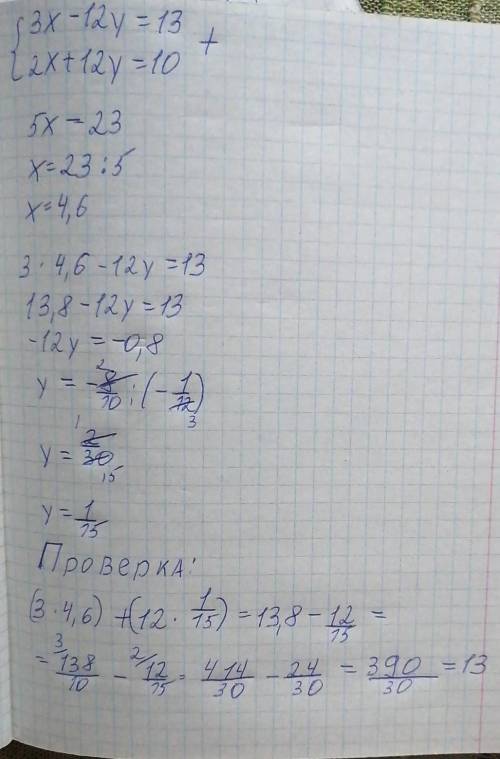 {3x-12y=13
{2x+12y=10 +
5x=23
x=23:5
x=4,6
3·4,6-12y=13
13,8-12y=13
-12y=-0,8
y=-8/10:(-1/12) 2 3
y=2/30 1 15
y=1/15
Проверка:
(3·4,6)+(12·1/15)=13,8-12/15=
=138/10 3 -12/15 2 =414/30-24/30=390/30=13